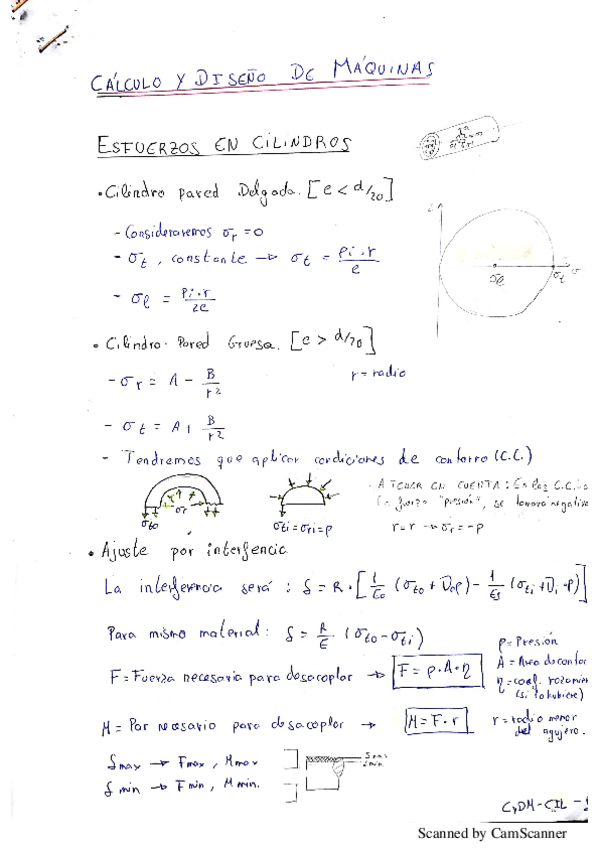 CÁLCULO Y DISEÑO DE MÁQUINAS
ESFUERZOS EN CILINDROS
• Cilindro pared Delgada. [e < d/20]
- Consideraremos σr = 0
- σt, constante → σt = Pi·r / e
- σl = Pi·r / 2e
σl σt σ
• Cilindro Pared Gruesa. [e > d/20]
- σr = A - B/r²
r = radio
- σt = A + B/r²
- Tendremos que aplicar condiciones de contorno (C.C.)
σto σr
σti = σri = p
- A TENER EN CUENTA: En las C.C.
fuerza "presión", se tomará negativa
r = r → σr = -p
• Ajuste por interferencia
La interferencia será: δ = R·[1/Eo (σto + νo p) - 1/Ei (σti + νi·p)]
Para mismo material: δ = R/E (σto - σti)
p = Presión
F = Fuerza necesaria para desacoplar → F = p·A·η
A = Area de contac
η = coef. rozamien
(si lo hubiere)
M = Par necesario para desacoplar → M = F·r
r = radio menor
del agujero.
δmax → Fmax, Mmax
δmin → Fmin, Mmin.
δmax
δmin
CyDM-CIL-1
Scanned by CamScanner